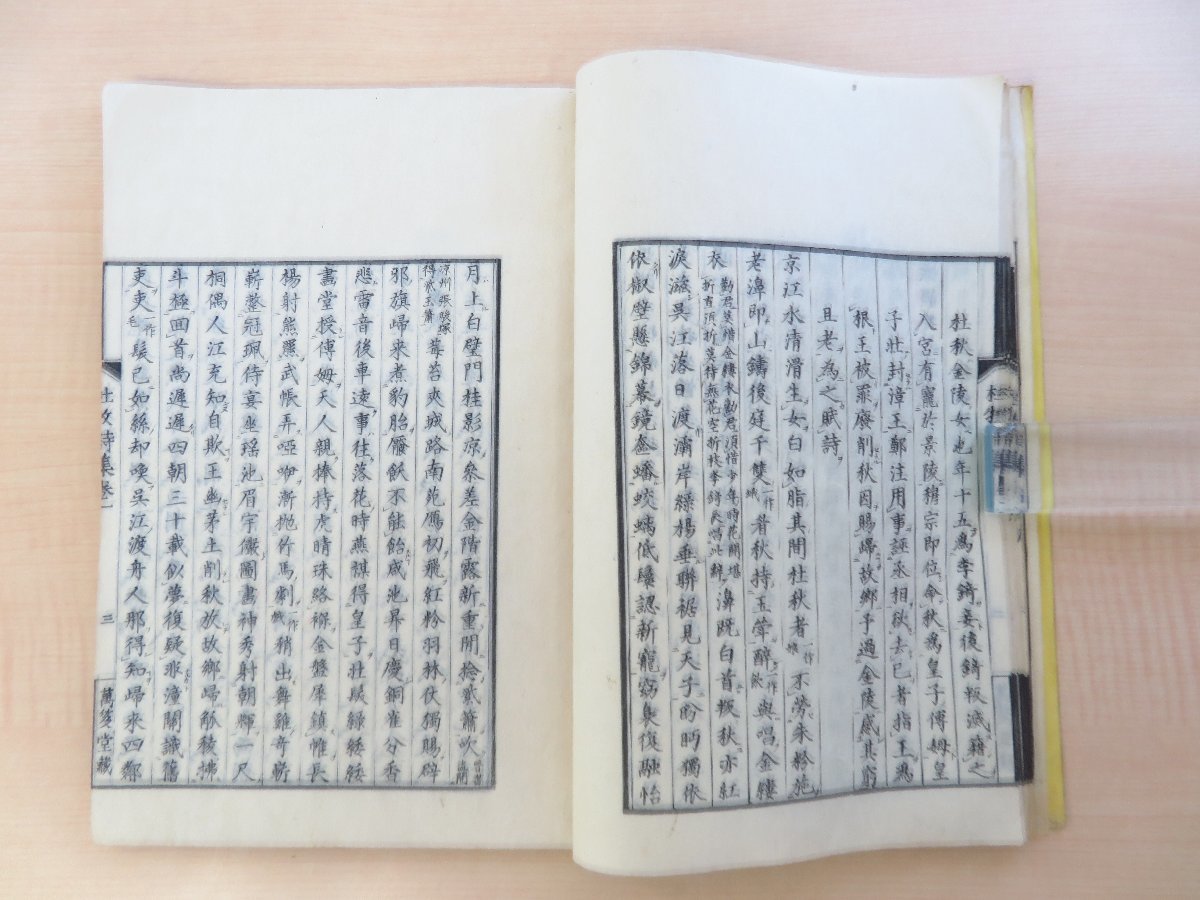 杜秋金陵女也年十五為李錡妾後錡叛滅籍之
入宮有寵於景陵穆宗即位命秋為皇子傅姆皇
子壯封漳王鄭注用事誣丞相欲去已者指王為
根王被罪廢削秋因賜歸故鄉予過金陵感其窮
且老為之賦詩
京江水清滑生女白如脂其間杜秋者一作娘不勞朱粉施
老濞即山鑄後庭千雙一作蛾眉秋持玉斝醉一作飲與唱金縷
衣勸君莫惜金縷衣勸君須惜少年時花開堪折直須折莫待無花空折枝李錡長唱此辭濞既白首叛秋亦紅
淚滋吳江落日渡灞岸綠楊垂聯裾見天子盼眄獨依
依椒壁懸錦幕鏡奩蟠蛟螭低鬟認新寵窈裊復融怡
月上白璧門桂影涼參差金階露新重閒捻紫簫吹
涼州張駿塚得紫玉簫莓苔夾城路南苑鴈初飛紅粉羽林仗獨賜辟
邪旗歸來煮豹胎饜飫不能飴咸池昇日慶銅雀分香
悲雷音後車遠事往落花時燕禖得皇子壯髮綠緌緌
畫堂授傅姆天人親捧持虎睛珠絡褓金盤犀鎮帷長
楊射熊羆武帳弄啞咿漸拋竹馬劇一作戲稍出舞雞奇嶄
嶄整冠珮侍宴坐瑤池眉宇儼圖畫神秀射朝輝一尺
桐偶人江充知自欺王幽茅土削秋放故鄉歸觚稜拂
斗極回首尚遲遲四朝三十載似夢復疑非潼關識舊
吏吏一作毛髮已如絲却喚吳江渡舟人那得知歸來四鄰
杜牧詩集卷一
三
萬笈堂藏